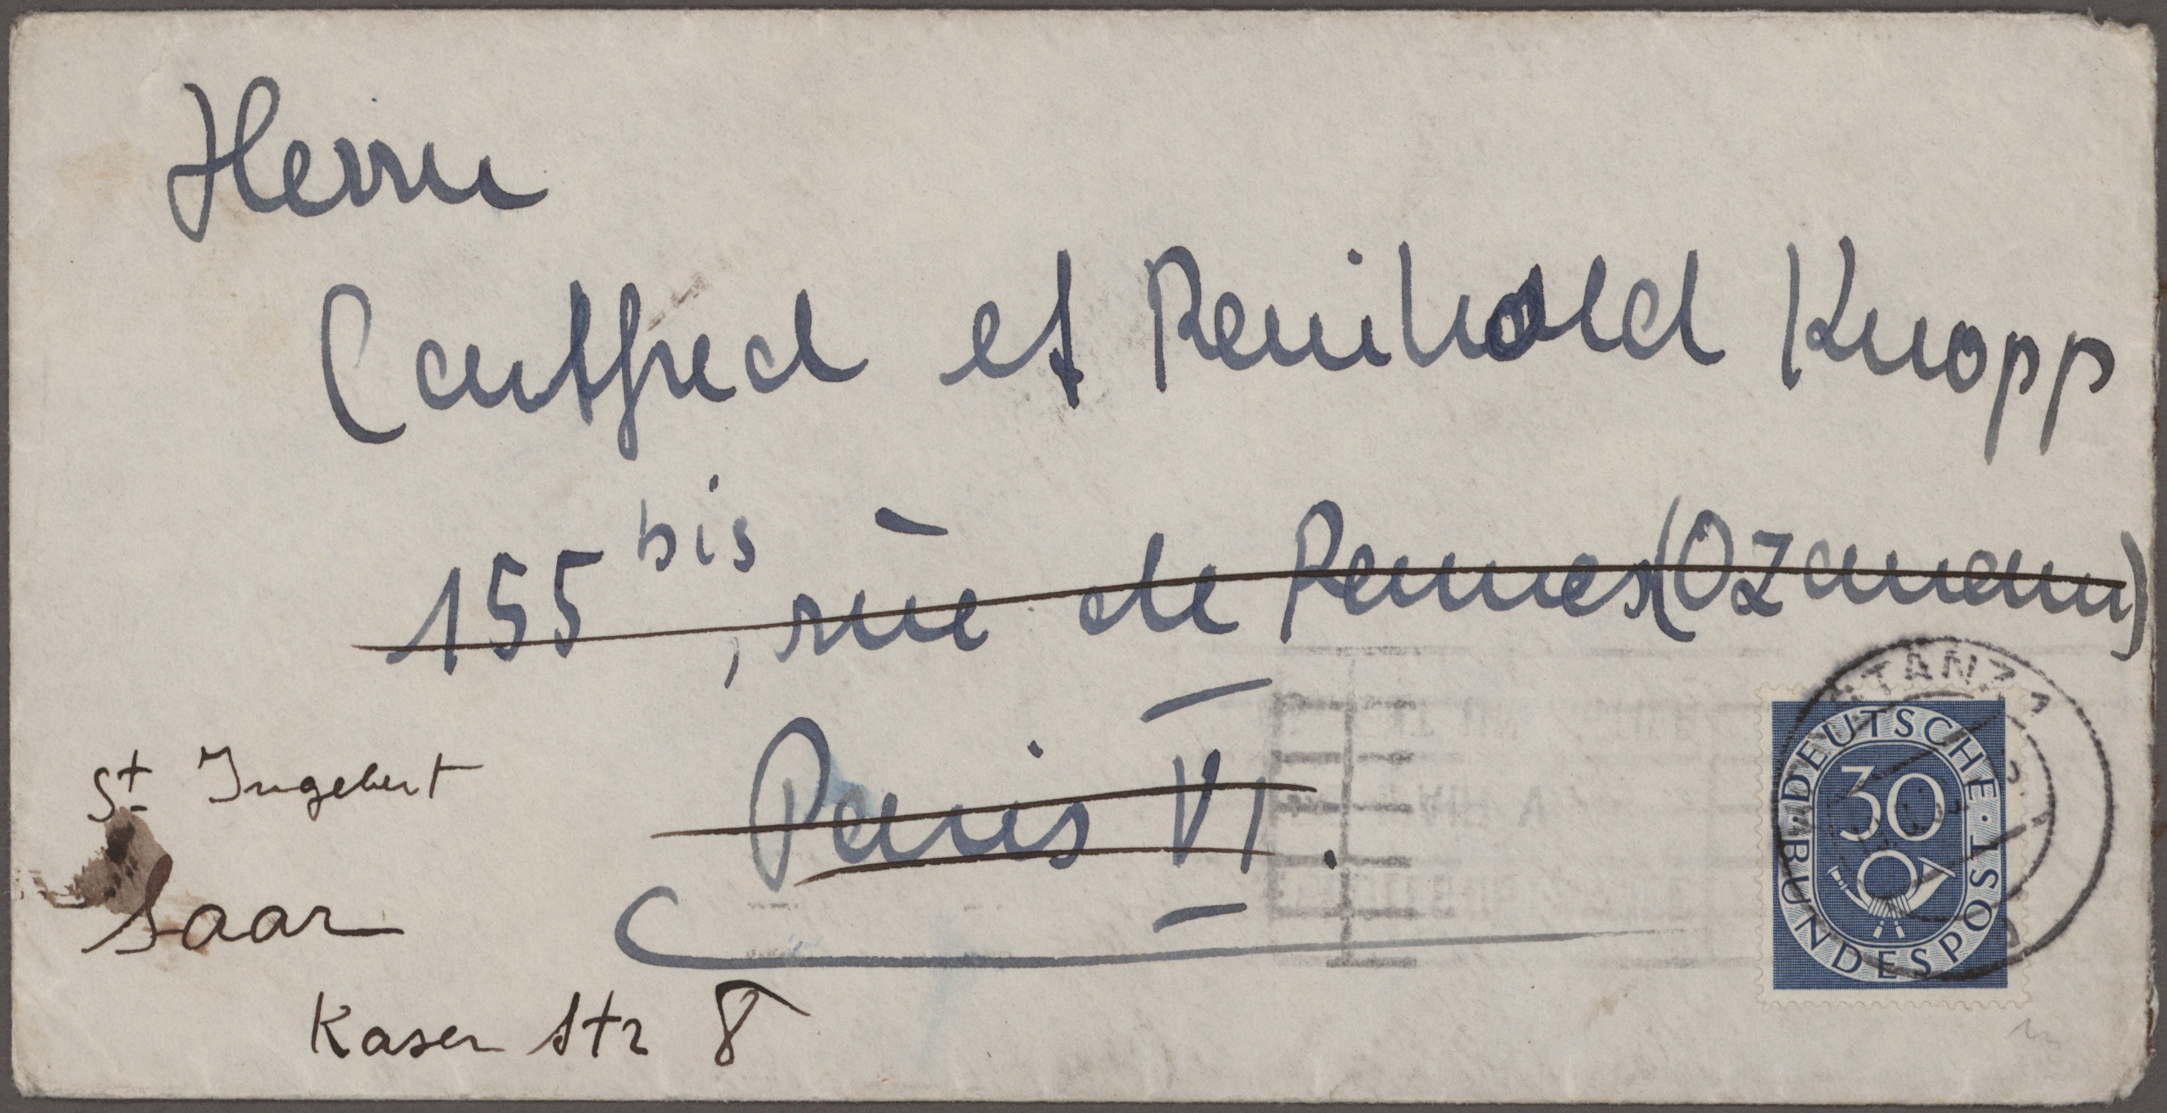 Herrn
Cantfred et Reinhold Knopp
155 bis, rue de Rennes (Ozanam)
Paris VI.
St Ingebert
Saar
Kaser Str 8
DEUTSCHE BUNDESPOST
30
STANZ